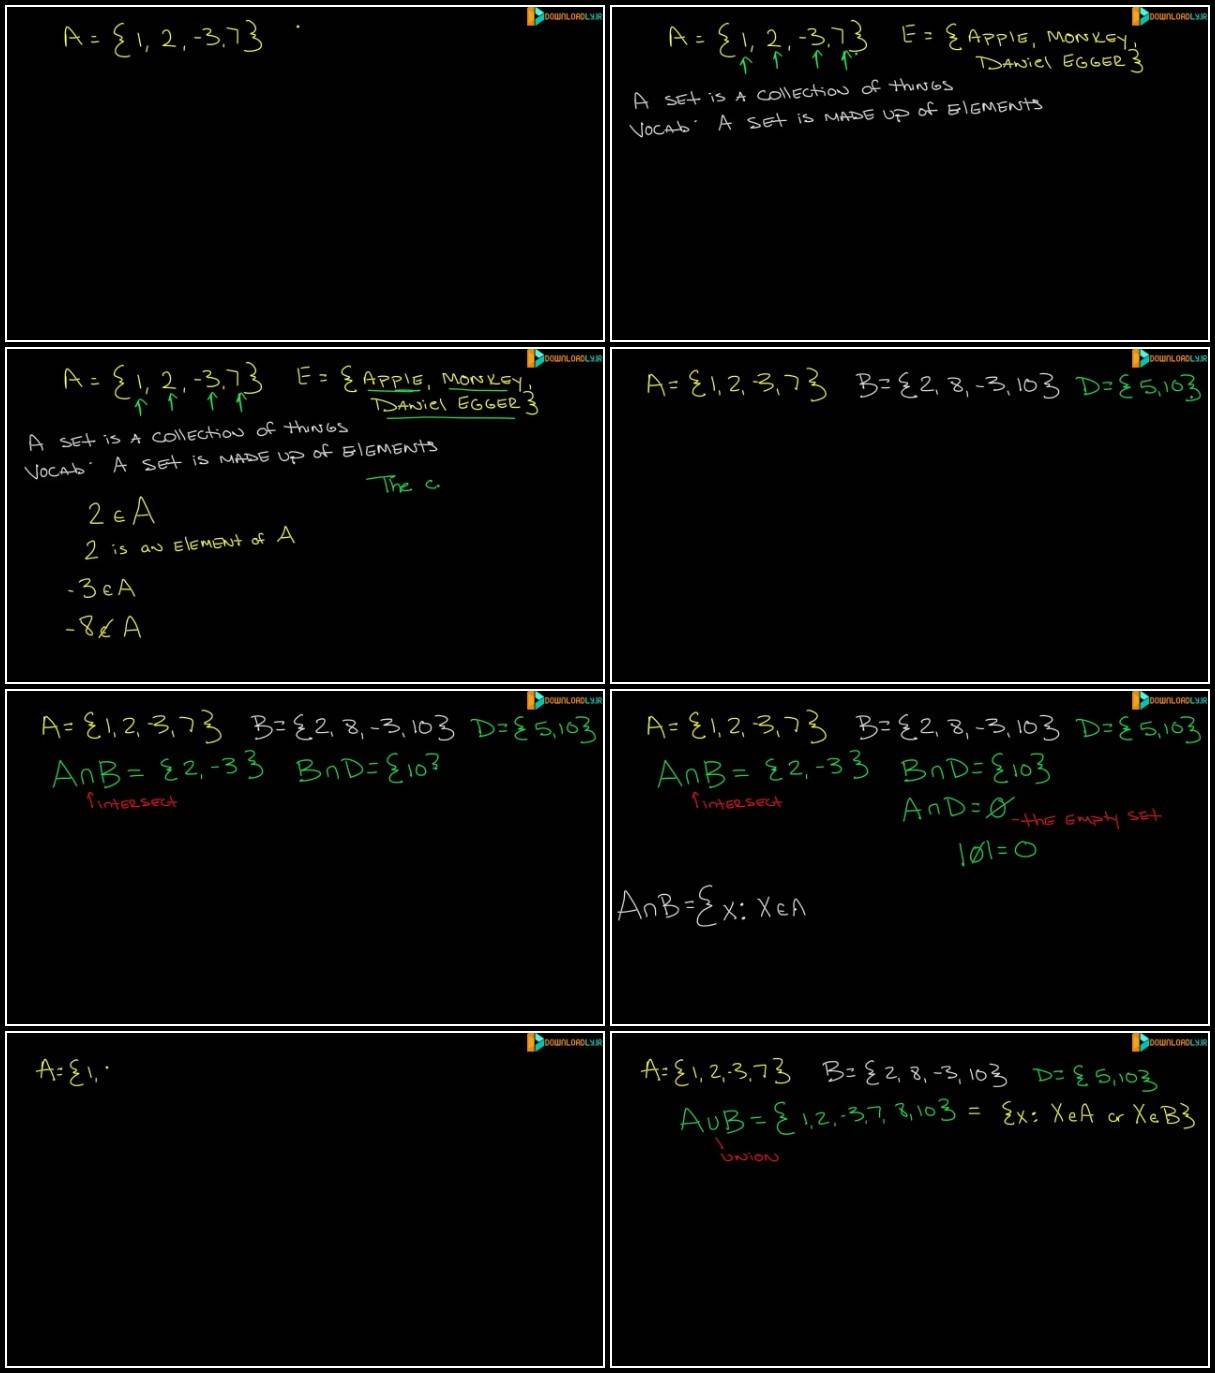 DOWNLOADLY.IR
A = {1, 2, -3, 7}
DOWNLOADLY.IR
A = {1, 2, -3, 7} E = {APPlE, MONKEY,
DANiel EGGER}
A SEt is A collection of things
Vocab: A SEt is MADE up of ElEMENts
DOWNLOADLY.IR
A = {1, 2, -3, 7} E = {APPlE, MONKEY,
DANiel EGGER}
A SEt is A collection of things
Vocab: A SEt is MADE up of ElEMENts
The c
2 ∈ A
2 is an ElEMENt of A
-3 ∈ A
-8 ∉ A
DOWNLOADLY.IR
A = {1, 2, -3, 7} B = {2, 8, -3, 10} D = {5, 10}
DOWNLOADLY.IR
A = {1, 2, -3, 7} B = {2, 8, -3, 10} D = {5, 10}
A∩B = {2, -3} B∩D = {10}
intersect
DOWNLOADLY.IR
A = {1, 2, -3, 7} B = {2, 8, -3, 10} D = {5, 10}
A∩B = {2, -3} B∩D = {10}
intersect
A∩D = ∅ - the Empty SEt
|∅| = 0
A∩B = {x: x∈A
DOWNLOADLY.IR
A = {1,
DOWNLOADLY.IR
A = {1, 2, -3, 7} B = {2, 8, -3, 10} D = {5, 10}
A∪B = {1, 2, -3, 7, 8, 10} = {x: x∈A or x∈B}
union